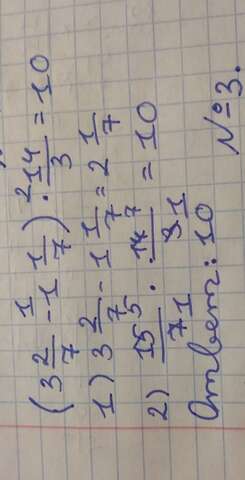 (3 2/7 -¹ 1 1/7) ·² 14/3 = 10
1) 3 2/7 - 1 1/7 = 2 1/7
2) 15⁵/7 1 · 14⁷/3 1 = 10
Ответ: 10
№3.